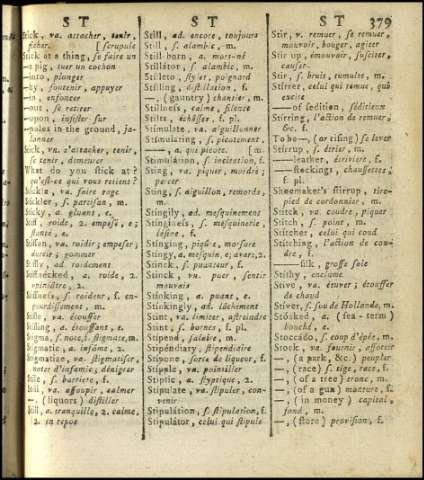 ST ST ST 379
Stick, va. attacher, tenir,
ficher. [scrupule
Stick at a thing, se faire un
a pig, tuer un cochon
—into, plonger
—by, soutenir, appuyer
—in, enfoncer
—out, se retirer
—upon, insister sur
—poles in the ground, ja-
lonner
Stick, vn. s'attacher, tenir,
se tenir, demeurer
What do you stick at?
qu'est-ce qui vous retient?
Stickle, va. faire rage
Stickler, s. partisan, m.
Sticky, a. gluant, e.
Stiff, a. roide, 2. empesé, e;
Stiffen, va. roidir; empeser;
durcir; gommer
Stiffly, ad. roidement
Stiffnécked, a. roide, 2.
opiniâtre, 2.
Stiffness, s. roideur, f. en-
gourdissement, m.
Stifle, va. étouffer
Stifling, a. étouffant, e.
Stigma, s. note, f. stigmate, m.
Stigmatic, a. infâme, 2.
Stigmatize, va. stigmatiser,
noter d'infamie, dénigrer
Stile, s. barriere, f.
Still, va. assoupir, calmer
—, (liquors) distiller
Still, a. tranquille, 2. calme,
2. in repos
Still, ad. encore, toujours
Still, s. alambic, m.
Still born, a. mort-né
Stillátor, s. alambic, m.
Stileto, stylet, poignard
Stilling, distillation, f.
—, (gauntry) chantier, m.
Stillness, calme, silence
Stilts, échasses, f. pl.
Stimulate, va. aiguillonner
Stimulating, s. picotement,
—, a. qui picote. [m.
Stimulátion, s. incitation, f.
Sting, va. piquer, mordre;
percer
Sting, s. aiguillon, remords,
m.
Stingily, ad. mesquinement
Stinginess, s. mesquinerie,
lésine, f.
Stinging, piqûre, morsure
Stingy, a. mesquin, e; avare, 2.
Stinck, s. puanteur, f.
Stinck, vn. puer, sentir
mauvais
Stinking, a. puant, e.
Stinkingly, ad. lâchement
Stint, va. limiter, astreindre
Stint, s. bornes, f. pl.
Stipend, salaire, m.
Stipéndiary, stipendiaire
Stipone, sorte de liqueur, f.
Stipple, va. pointiller
Stiptic, a. styptique, 2.
Stipulate, va. stipuler, con-
venir
Stipulátion, s. stipulation, f.
Stipulátor, celui qui stipule
Stir, v. remuer, se remuer,
mouvoir, bouger, agiter
Stir up, émouvoir, susciter,
causer
Stir, s. bruit, tumulte, m.
Stirrer, celui qui remue, qui
excite
—of sedition, séditieux
Stirring, l'action de remuer,
&c. f.
To be—, (or rising) se lever
Stirrup, s. étrier, m.
—leather, étriviere, f.
—stockings, chaussettes,
f. pl.
Shoemaker's stirrup, tire-
pied de cordonnier, m.
Stitch, va. coudre, piquer
Stitch, s. point, m.
Stitcher, celui qui coud
Stitching, l'action de cou-
dre, f.
—silk, grosse soie
Stithy, enclume
Stive, va. étuver; étouffer
de chaud
Stiver, s. sou de Hollande, m.
Stoaked, a. (sea-term)
bouché, e.
Stoccádo, s. coup d'épée, m.
Stock, va. fournir, assortir
—, (a park, &c.) peupler
—, (race) s. tige, race, f.
—, (of a tree) tronc, m.
—, (of a gun) monture, f.
—, (in money) capital,
fond, m.
—, (store) provision, f.